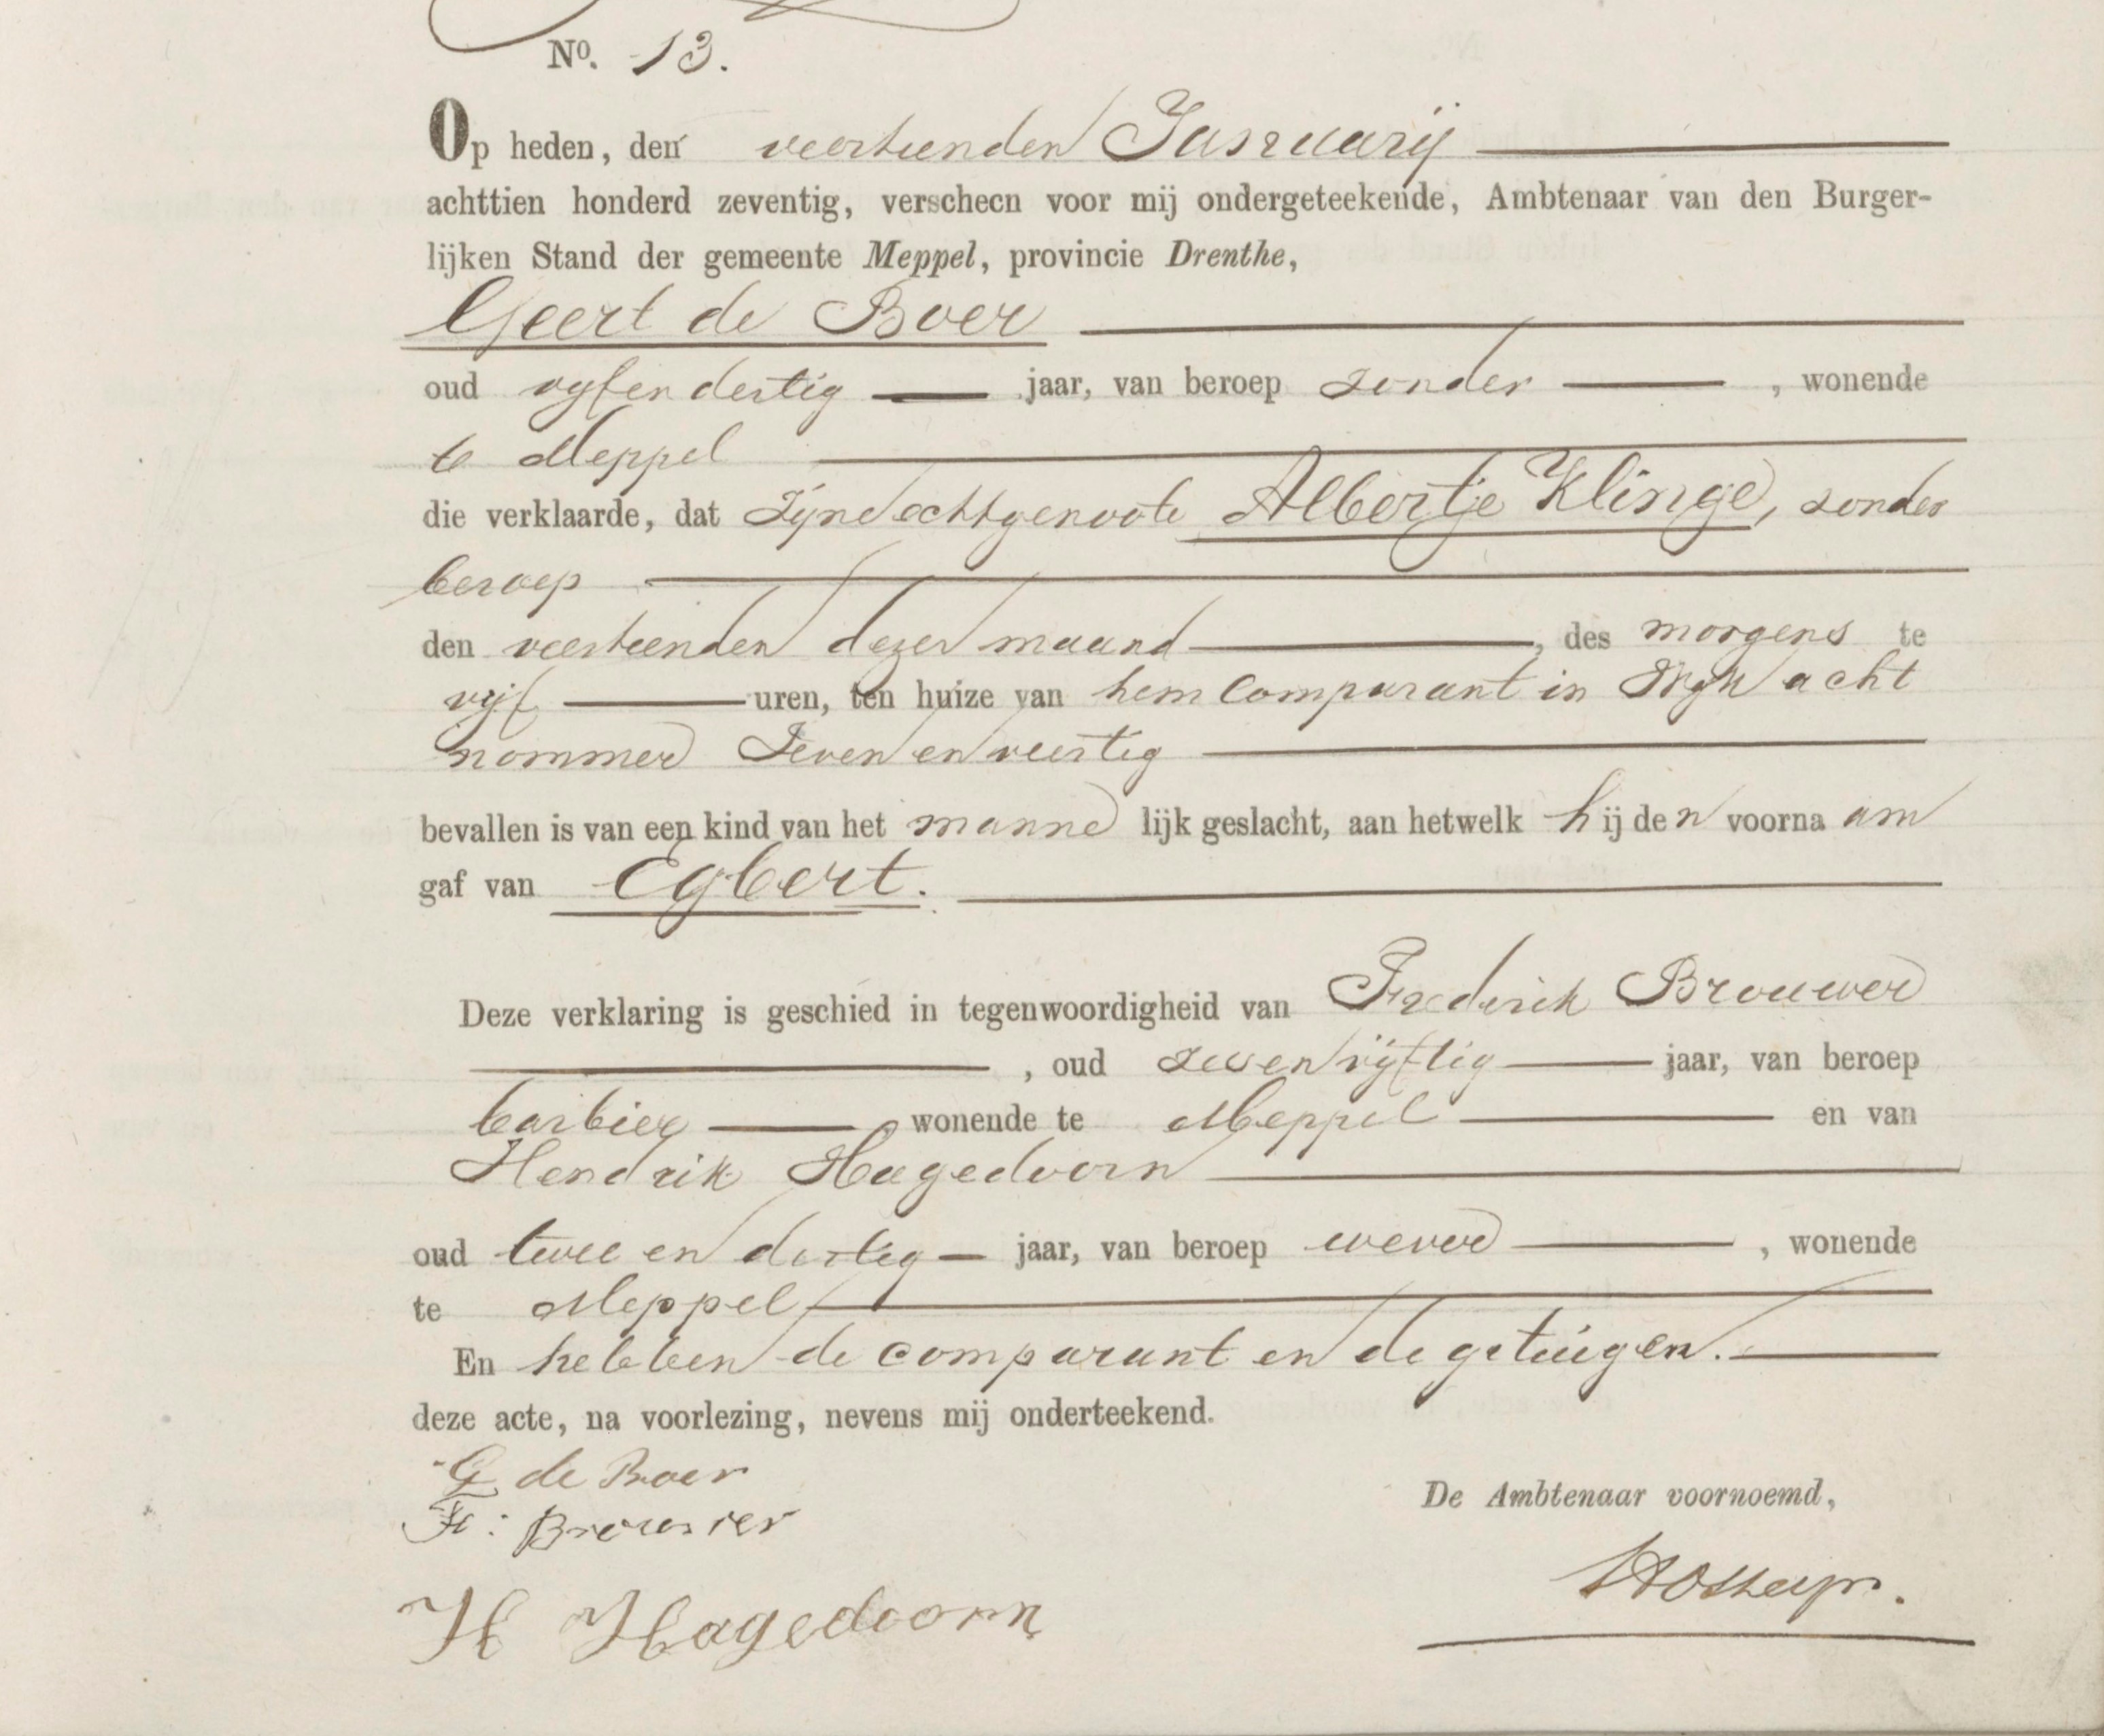 No. 13.
Op heden, den veerteenden Januarij
achttien honderd zeventig, verscheen voor mij ondergeteekende, Ambtenaar van den Burger-
lijken Stand der gemeente Meppel, provincie Drenthe,
Geert de Boer
oud vyfendertig jaar, van beroep zonder , wonende
te Meppel
die verklaarde, dat zijne echtgenoote Albertje Klinge, zonder
beroep
den veerteenden dezer maand , des morgens te
vijf uren, ten huize van hem Comparant in Wyk acht
nommer Zeven en veertig
bevallen is van een kind van het manne lijk geslacht, aan hetwelk hij den voornaam
gaf van Egbert.
Deze verklaring is geschied in tegenwoordigheid van Frederik Brouwer
, oud zevenvijftig jaar, van beroep
barbier wonende te Meppel en van
Hendrik Hagedoorn
oud twee en dertig jaar, van beroep wever , wonende
te Meppel
En hebben de comparant en de getuigen.
deze acte, na voorlezing, nevens mij onderteekend.
G de Boer
F: Brouwer
De Ambtenaar voornoemd,
H Hagedoorn